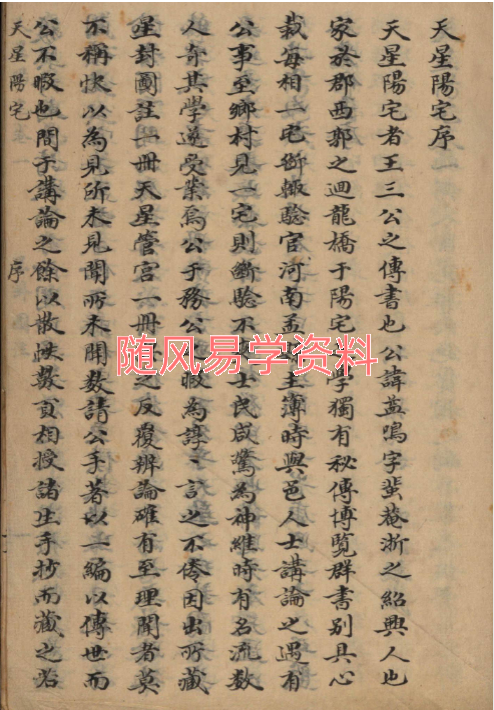 天星陽宅序
天星陽宅者王三公之傳書也公諱益鳴字蜚菴浙之紹興人也
家於郡西郭之迴龍橋于陽宅學獨有秘傳博覧群書别具心
裁每相一宅斷輙驗官河南孟主簿時與邑人士講論之遇有
公事至鄉村見一宅則斷驗不士民咸驚為神維時有名流數
人奇其學遂受業焉公于務公暇為諄、言之不倦因出所藏
星封圖註一冊天星管宫一冊之反覆辨論確有至理聞者莫
不稱快以為見所未見聞所未聞数請公手著以一編以傳世而
公不暇也間于講論之餘以散帙数頁相授諸生手抄而藏之若
天星陽宅
序
随风易学资料